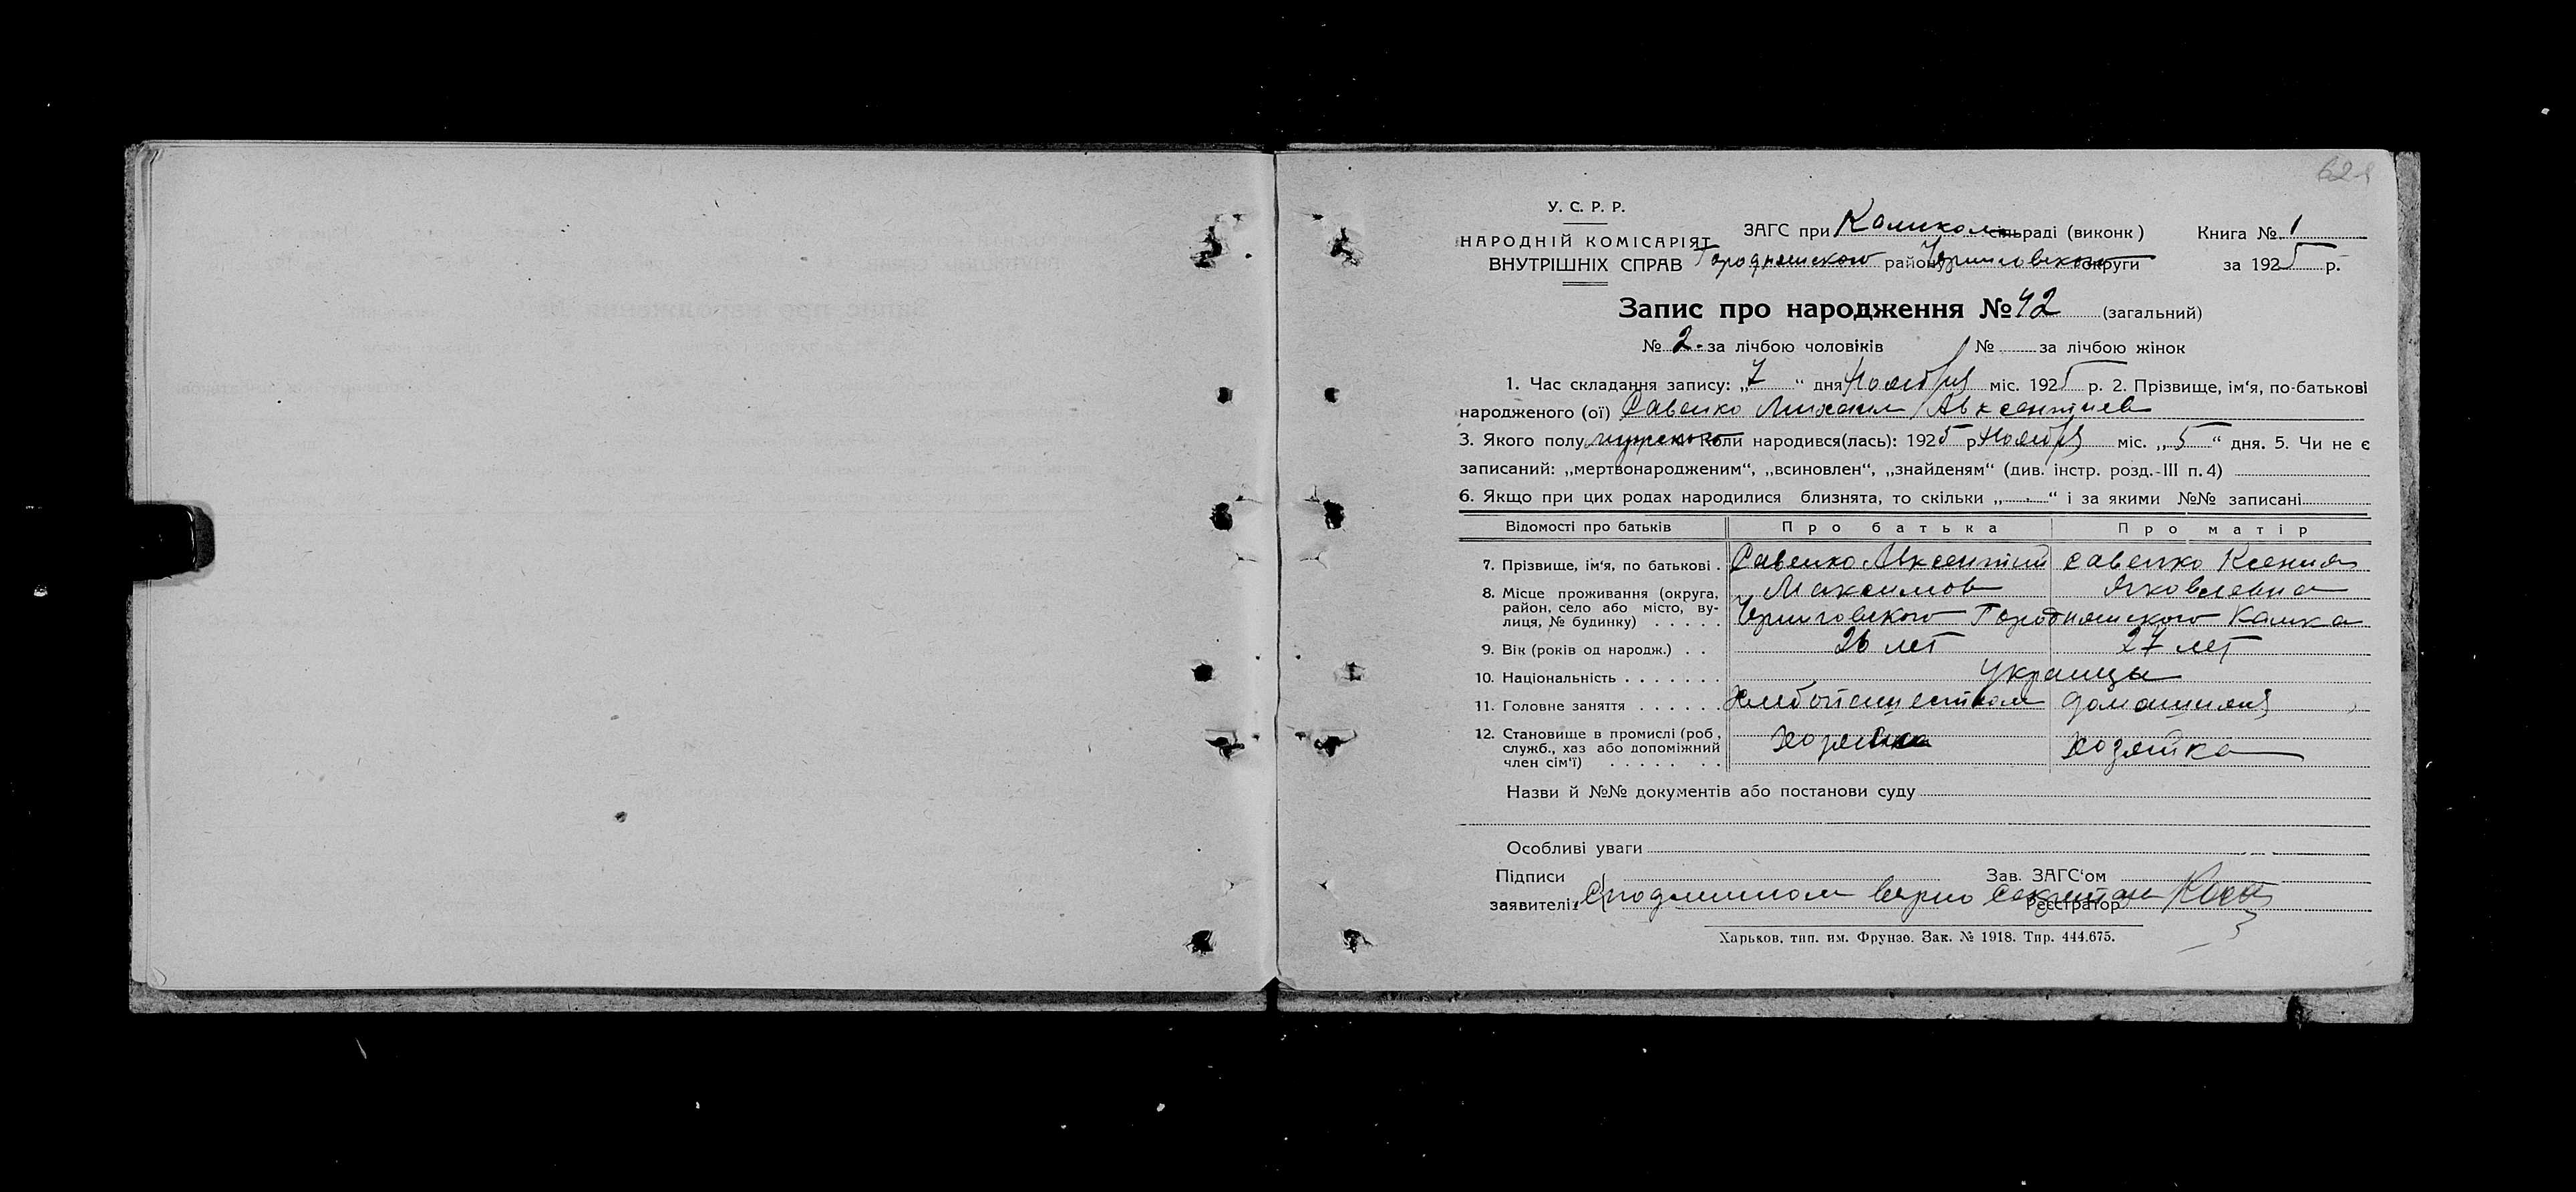 У. С. Р. Р.
НАРОДНІЙ КОМІСАРІЯТ
ВНУТРІШНІХ СПРАВ
ЗАГС при сільраді (виконк)
Городнянского району Черниговского округи
Книга № 1
за 1925 р.
Запис про народження № 42 (загальний)
№ 2 за лічбою чоловіків № за лічбою жінок
1. Час складання запису: „7“ дня Ноября міс. 1925 р. 2. Прізвище, ім‘я, по-батькові
народженого (ої) Савенко Михаил Авксентиев
3. Якого полу мужского Коли народився(лась): 1925 р Ноября міс. „5“ дня. 5. Чи не є
записаний: „мертвонародженим“, „всиновлен“, „знайденям“ (див. інстр. розд.-III п. 4)
6. Якщо при цих родах народилися близнята, то скільки „ “ і за якими №№ записані
Відомості про батьків Про батька Про матір
7. Прізвище, ім‘я, по батькові . Савенко Авксентий Савенко Ксения
Максимов Яковлевна
8. Місце проживання (округа, район, село або місто, вулиця, № будинку) . . . . . Черниговского Городнянского Камка
9. Вік (років од народж.) . . 26 лет 27 лет
10. Національність . . . . . . . Украинцы
11. Головне заняття . . . . . . Хлебопашеством домашняя
12. Становище в промислі (роб., служб., хаз або допоміжний член сім‘ї) . . . . . . . хозяйка
Назви й №№ документів або постанови суду
Особливі уваги
Підписи Зав. ЗАГС‘ом
заявителі: С подлинном верно Секретарь
Реєстратор
Харьков, тип. им. Фрунзе. Зак. № 1918. Тир. 444.675.